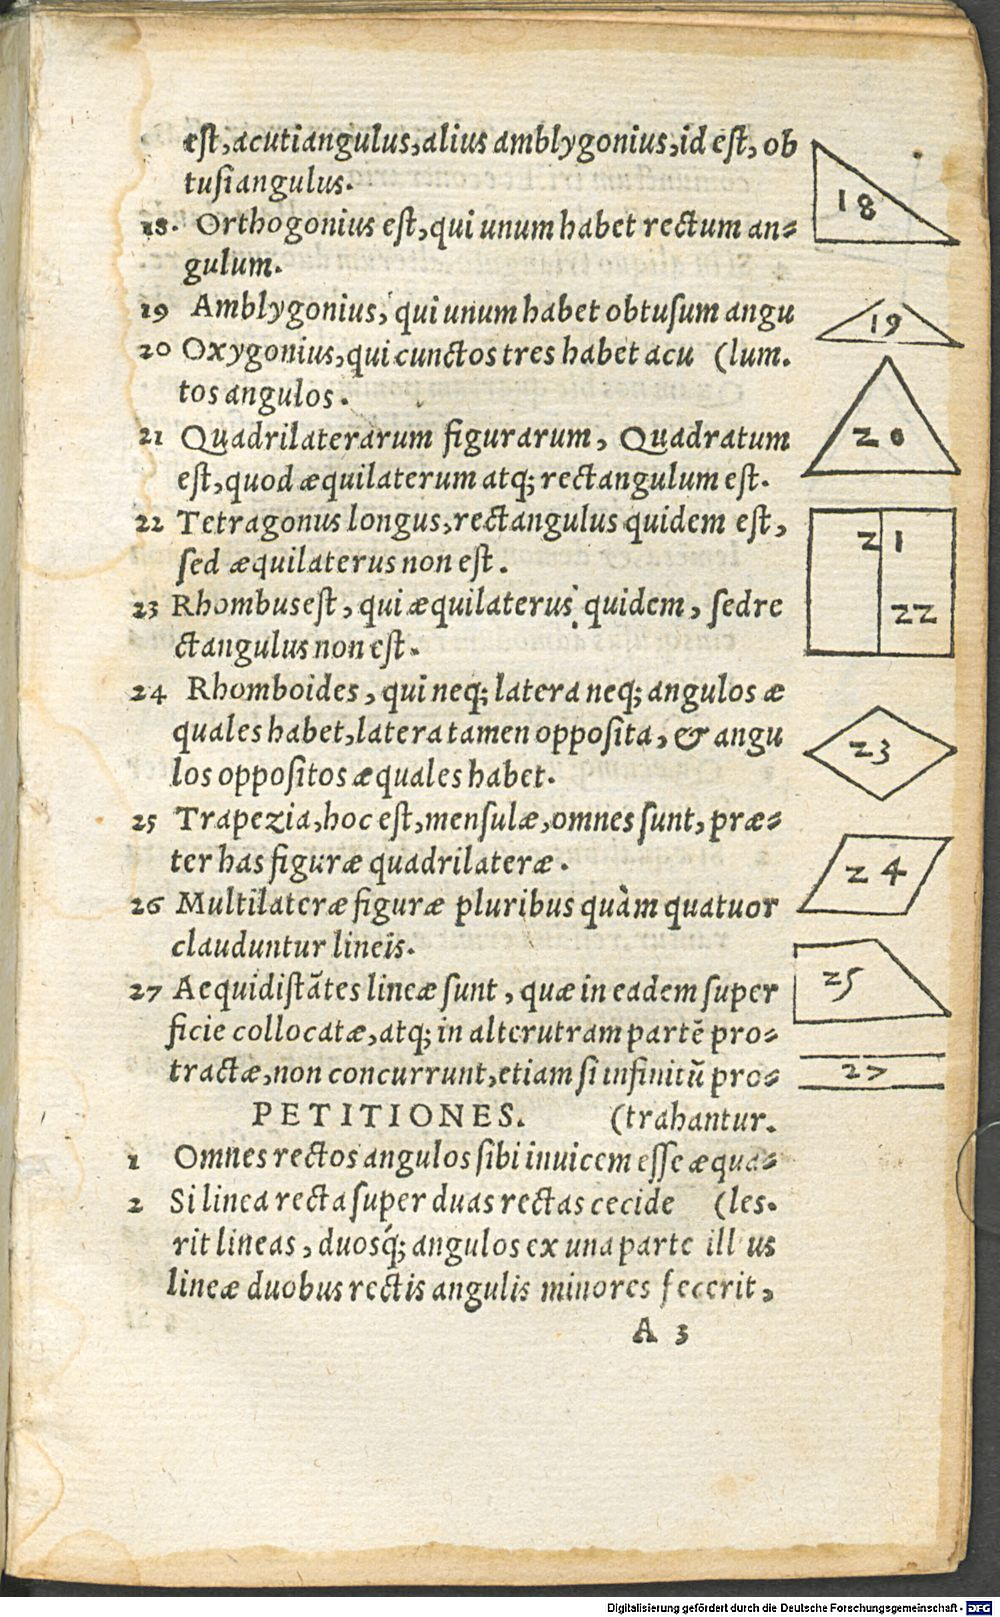 est, acutiangulus, alius amblygonius, id est, ob
tusiangulus.
18. Orthogonius est, qui unum habet rectum an=
gulum.
19 Amblygonius, qui unum habet obtusum angu
20 Oxygonius, qui cunctos tres habet acu (lum.
tos angulos.
21 Quadrilaterarum figurarum, Quadratum
est, quod æquilaterum atq; rectangulum est.
22 Tetragonus longus, rectangulus quidem est,
sed æquilaterus non est.
23 Rhombus est, qui æquilaterus quidem, sed re
ctangulus non est.
24 Rhomboides, qui neq; latera neq; angulos æ
quales habet, latera tamen opposita, & angu
los oppositos æquales habet.
25 Trapezia, hoc est, mensulæ, omnes sunt, præ=
ter has figuræ quadrilateræ.
26 Multilateræ figuræ pluribus quàm quatuor
clauduntur lineis.
27 Aequidistãtes lineæ sunt, quæ in eadem super
ficie collocatæ, atq; in alterutram partẽ pro=
tractæ, non concurrunt, etiam si infinitũ pro=
PETITIONES. (trahantur.
1 Omnes rectos angulos sibi invicem esse æqua=
2 Si linea recta super duas rectas cecide (les.
rit lineas, duosq́; angulos ex una parte illius
lineæ duobus rectis angulis minores fecerit,
A 3
18
19
20
21
22
23
24
25
27
Digitalisierung gefördert durch die Deutsche Forschungsgemeinschaft - DFG